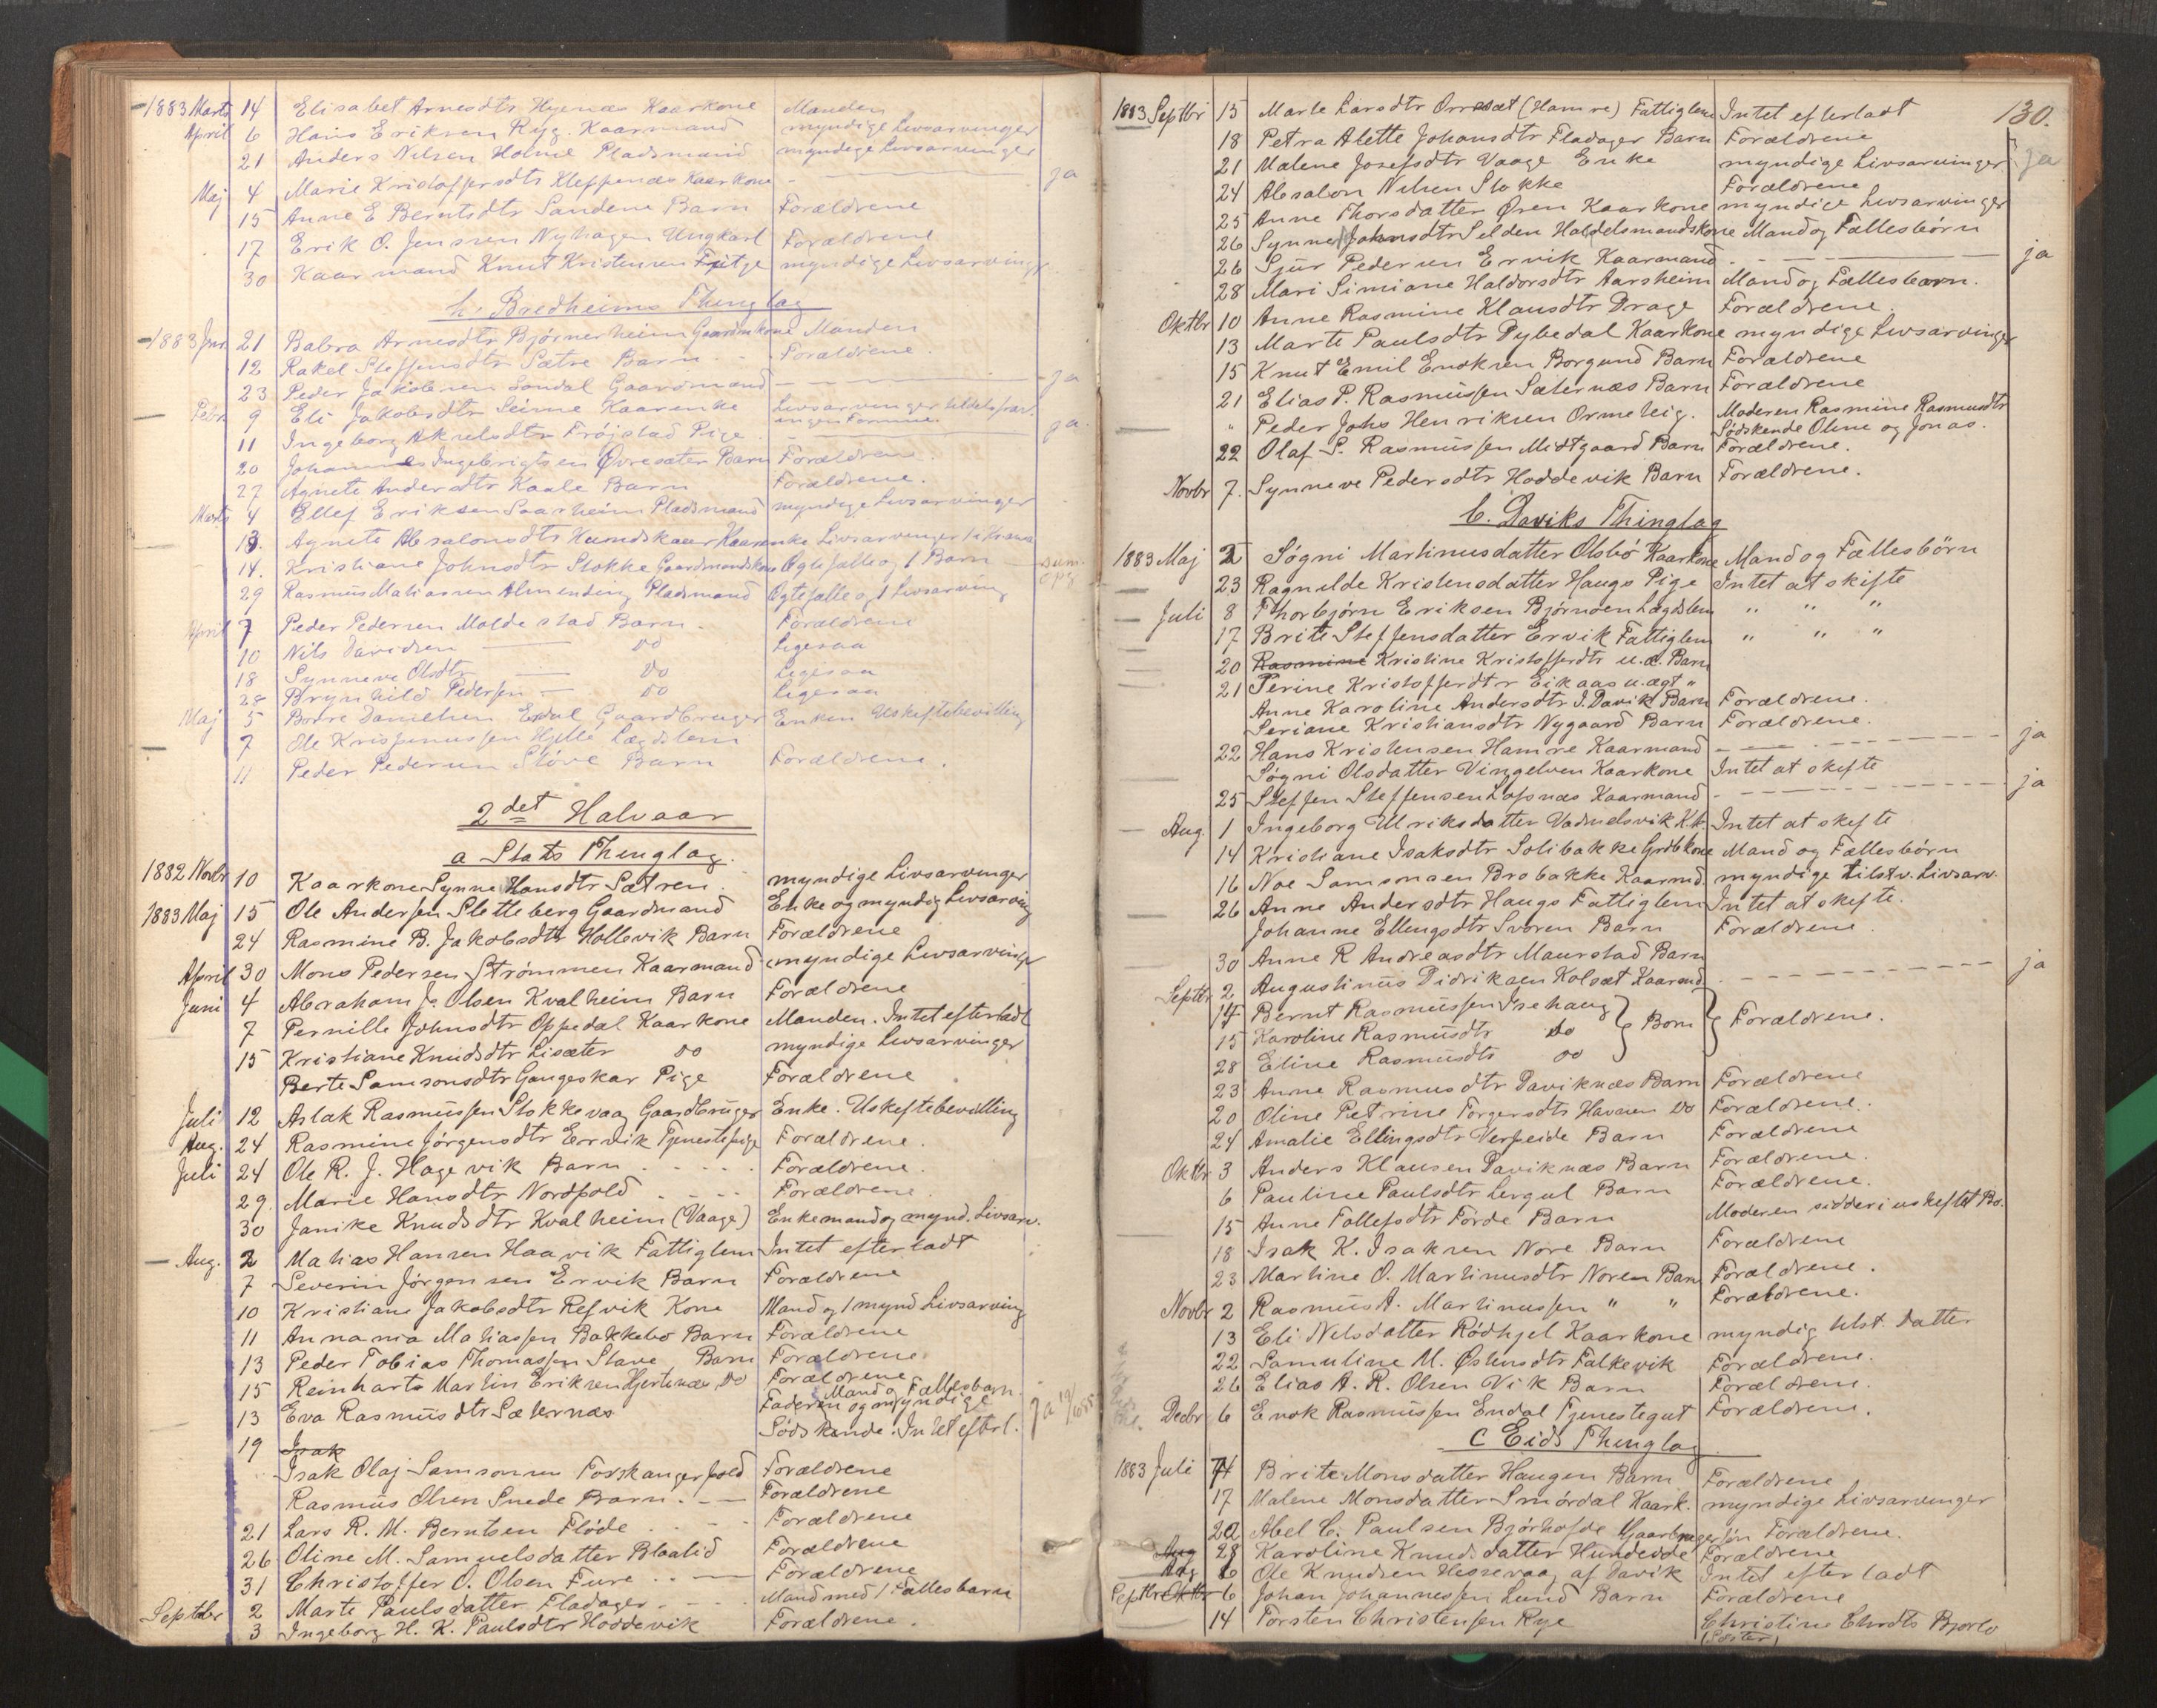 1883 Marts 14 Elisabet Arnesdtr Hyenæs Kaarkone Manden
April 6 Hans Eriksen Ryg. Kaarmand myndige Livsarvinger
21 Anders Nilsen Holme Pladsmand myndige Livsarvinger
Maj 4 Marie Kristoffersdtr Kleppenæs Kaarkone - ja
15 Anne E Berntsdtr Sandene Barn Forældrene
17 Erik O. Jenssen Nyhagen Ungkarl Forældrene
30 Kaarmand Knut Kristensen Fitje myndige Livsarving
h. Bredheims Thinglag
1883 Jan. 21 Babra Arnesdtr Bjørnerheim Gaardmkone Manden
12 Rakel Steffensdtr Sætre Barn Forældrene
23 Peder Jakobsen Sandal Gaardmand - ja
Febr 9 Eli Jakobsdtr Seime Kaarenke Livsarvinger tildels frav.
ingen Formue.
11 Ingeborg Akselsdtr Frøjstad Pige - ja
20 Johannes Ingebrigtsen Øvresæter Barn Forældrene
27 Agnete Andersdtr Kaale Barn Forældrene.
Marts 4 Ellef Eriksen Saarheim Pladsmand myndige Livsarvinger
13. Agnete Absalonsdtr Hundskaar Kaarenke Livsarvinger
14. Kristiane Johnsdtr Stokke Gaardmandskone Ægtefælle og 1 Barn
29 Rasmus Matiassen Almending Pladsmand Ægtefælle og 1 Livsarving
April 7 Peder Pedersen Maldestad Barn Forældrene
10 Nils Davidsen — Do Ligesaa
18 Synneve Olsdtr — Do Ligesaa
28 Brynhild Pedersen — Do Ligesaa
Maj 5 Bødre Danielsen Endal Gaardbruger Enken Uskiftebevilling
7 Ole Krispinussen Hjelle Lægdslem
11 Peder Pedersen Støve Barn Forældrene.
2det Halvaar
a Stats Thinglag.
1882 Novbr 10 Kaarkone Synne Hansdtr Sætren. myndige Livsarvinger
1883 Maj 15 Ole Anderssen Sletteberg Gaardmand Enke og myndig Livsarving
24 Rasmine B. Jakobsdtr Hollevik Barn Forældrene
April 30 Mons Pedersen Strømmen Kaarmand myndige Livsarvinger
Juni 4 Abraham J. Olsen Kvalheim Barn Forældrene
7 Pernille Johnsdtr Oppedal Kaarkone Manden. Intet efterladt
15 Kristiane Knudsdtr Lisæter Do myndige Livsarvinger
Berte Samsonsdtr Gangeskar Pige Forældrene
Juli 12 Aslak Rasmussen Stokkevaag Gaardbruger Enke. Uskiftebevilling
Aug. 24 Rasmine Jørgensdtr Ervik Tjenestepige Forældrene.
Juli 24 Ole R. J. Hagevik Barn Forældrene.
29. Marie Hansdtr Nordpold Forældrene.
30 Janike Knudsdtr Kvalheim (Vaage) Enkemand og mynd. Livsarv.
Aug. 2 Matias Hansen Haavik Fattiglem Intet efterladt
7 Severin Jørgensen Ervik Barn Forældrene
10 Kristiane Jakobsdtr Refvik Kone Mand og 1 mynd Livsarving
11 Annania Matiassen Bakkebø Barn Forældrene
13 Peder Tobias Thomassen Stave Barn Forældrene
15 Reinharts Martin Eriksen Hjertenæs Do Forældrene
13 Eva Rasmusdtr Sæternæs Mand og Fællesbarn. ja
Faderen og myndige
Sødskende. Intet efterl.
19 Isak
Isak Olaj Samsonsen Forskangerpold Forældrene
Rasmus Olsen Snede Barn. - — Forældrene
21 Lars R. M. Berntsen Fløde Forældrene
26 Oline M. Samuelsdatter Blaalid Forældrene
31 Christoffer O. Olsen Fure .. — Forældrene
Septbr 2 Marte Paulsdatter Fladager Mand med 1 Fællesbarn
3 Ingeborg H. K. Paulsdtr Hoddevik Forældrene.
130.
1883 Septbr 15 Marte Larsdtr Orresæt (Hamre) Fattiglem Intet efterladt
18 Petra Alette Johansdtr Fladager Barn Forældrene
21 Malene Josefsdtr Vaage Enke myndige Livsarvinger. ja
24 Absalon Nilsen Stokke Forældrene
25 Anne Thorsdatter Øren Kaarkone myndige Livsarvinger
26 Synne Johnsdtr Selden Handelsmandskone Mand og Fællesbørn
26 Sjur Pedersen Ervik Kaarmand - ja
28 Mari Simiane Haldorsdtr Aarsheim Mand og Fællesbarn.
Oktbr 10 Anne Rasmine Klausdtr Drage Forældrene.
13 Marte Paulsdtr Dybedal Kaarkone myndige Livsarvinger
15 Knut Emil Enoksen Borgund Barn Forældrene
21 Elias P. Rasmussen Sæternæs Barn Forældrene
" Peder Johs Henriksen Ormeteig. Moderen Rasmine Rasmusdtr
Sødskende Oline og Jonas.
22 Olaf S. Rasmussen Midtgaard Barn Forældrene.
Novbr 7. Synneve Pedersdtr Hoddevik Barn Forældrene.
b. Daviks Thinglag
1883 Maj 2 Søgni Martinusdatter Olsbø Kaarkone Mand og Fællesbörn
23 Ragnilde Kristensdatter Hauge Pige Intet at skifte
Juli 8 Thorbjørn Eriksen Bjørnøen Lægdslem " " "
17 Brite Steffensdatter Ervik Fattiglem " " "
20 Rasmine Kristine Kristoffersdtr u. æ. Barn
21 Perine Kristoffersdtr Eikaas u. ægt "
Anne Karoline Andersdtr I. Davik Barn Forældrene.
Seriane Kristiansdtr Nygaard Barn Forældrene.
22 Hans Kristensen Hamre Kaarmand - ja
Søgni Olsdatter Vingelven Kaarkone Intet at skifte
25 Steffen Steffensen Lofsnæs Kaarmand - ja
Aug. 1 Ingeborg Ulriksdatter Vadnelsvik Kk. Intet at skifte
14 Kristiane Isaksdtr Solibakke Grdbkone Mand og Fællesbörn
16 Noe Samsonsen Brobakke Kaarmd. myndige tilstv. Livsarv.
26 Anne Andersdtr Hauge Fattiglem Intet at skifte.
Johanne Ellingsdtr Svoren Barn Forældrene.
30 Anne R Andreasdtr Maurstad Barn
Septbr 2 Augustinus Didriksen Kolset Kaarmd - ja
14 Bernt Rasmussen Isehaug } Børn } Forældrene.
15 Karoline Rasmusdtr Do
28 Eline Rasmusdtr Do
23 Anne Rasmusdtr Daviknæs Barn Forældrene
20 Oline Petrine Torgersdtr Havnen Do Forældrene.
24 Amalie Ellingsdtr Verpeide Barn Forældrene
Oktbr 3 Anders Klausen Daviknæs Barn Forældrene.
6 Pauline Paulsdtr Lergul Barn Forældrene.
15 Anne Tollefsdtr Førde Barn Moderen sidder i uskiftet Bo.
18 Isak K. Isaksen Nore Barn Forældrene
23 Martine O. Martinusdtr Noren Barn Forældrene.
Novbr 2 Rasmus A. Martinussen " " Forældrene.
13 Eli Nilsdatter Rödhjel Kaarkone myndig tilst. Datter
22 Samuline M. Østensdtr Falkevik Forældrene.
26 Elias A. R. Olsen Vik Barn Forældrene.
Decbr 6 Enok Rasmussen Endal Tjenestegut Forældrene.
C Eids Thinglag
1883 Juli 4 Brite Monsdatter Haugen Barn Forældrene
17 Malene Monsdatter Smørdal Kaark. myndige Livsarvinger
22 Abel C. Paulsen Bjørhofde Gaardbrugersøn Forældrene.
Aug 28 Karoline Knudsdatter Hundedde Forældrene
Aug 6 Ole Knudsen Hessevaag af Davik Intet efterladt
Septbr Oktbr 6 Johan Johannessen Lund Barn Forældrene
14 Torsten Christensen Rye Christine Chrsdtr Bjorlo
(Søster)